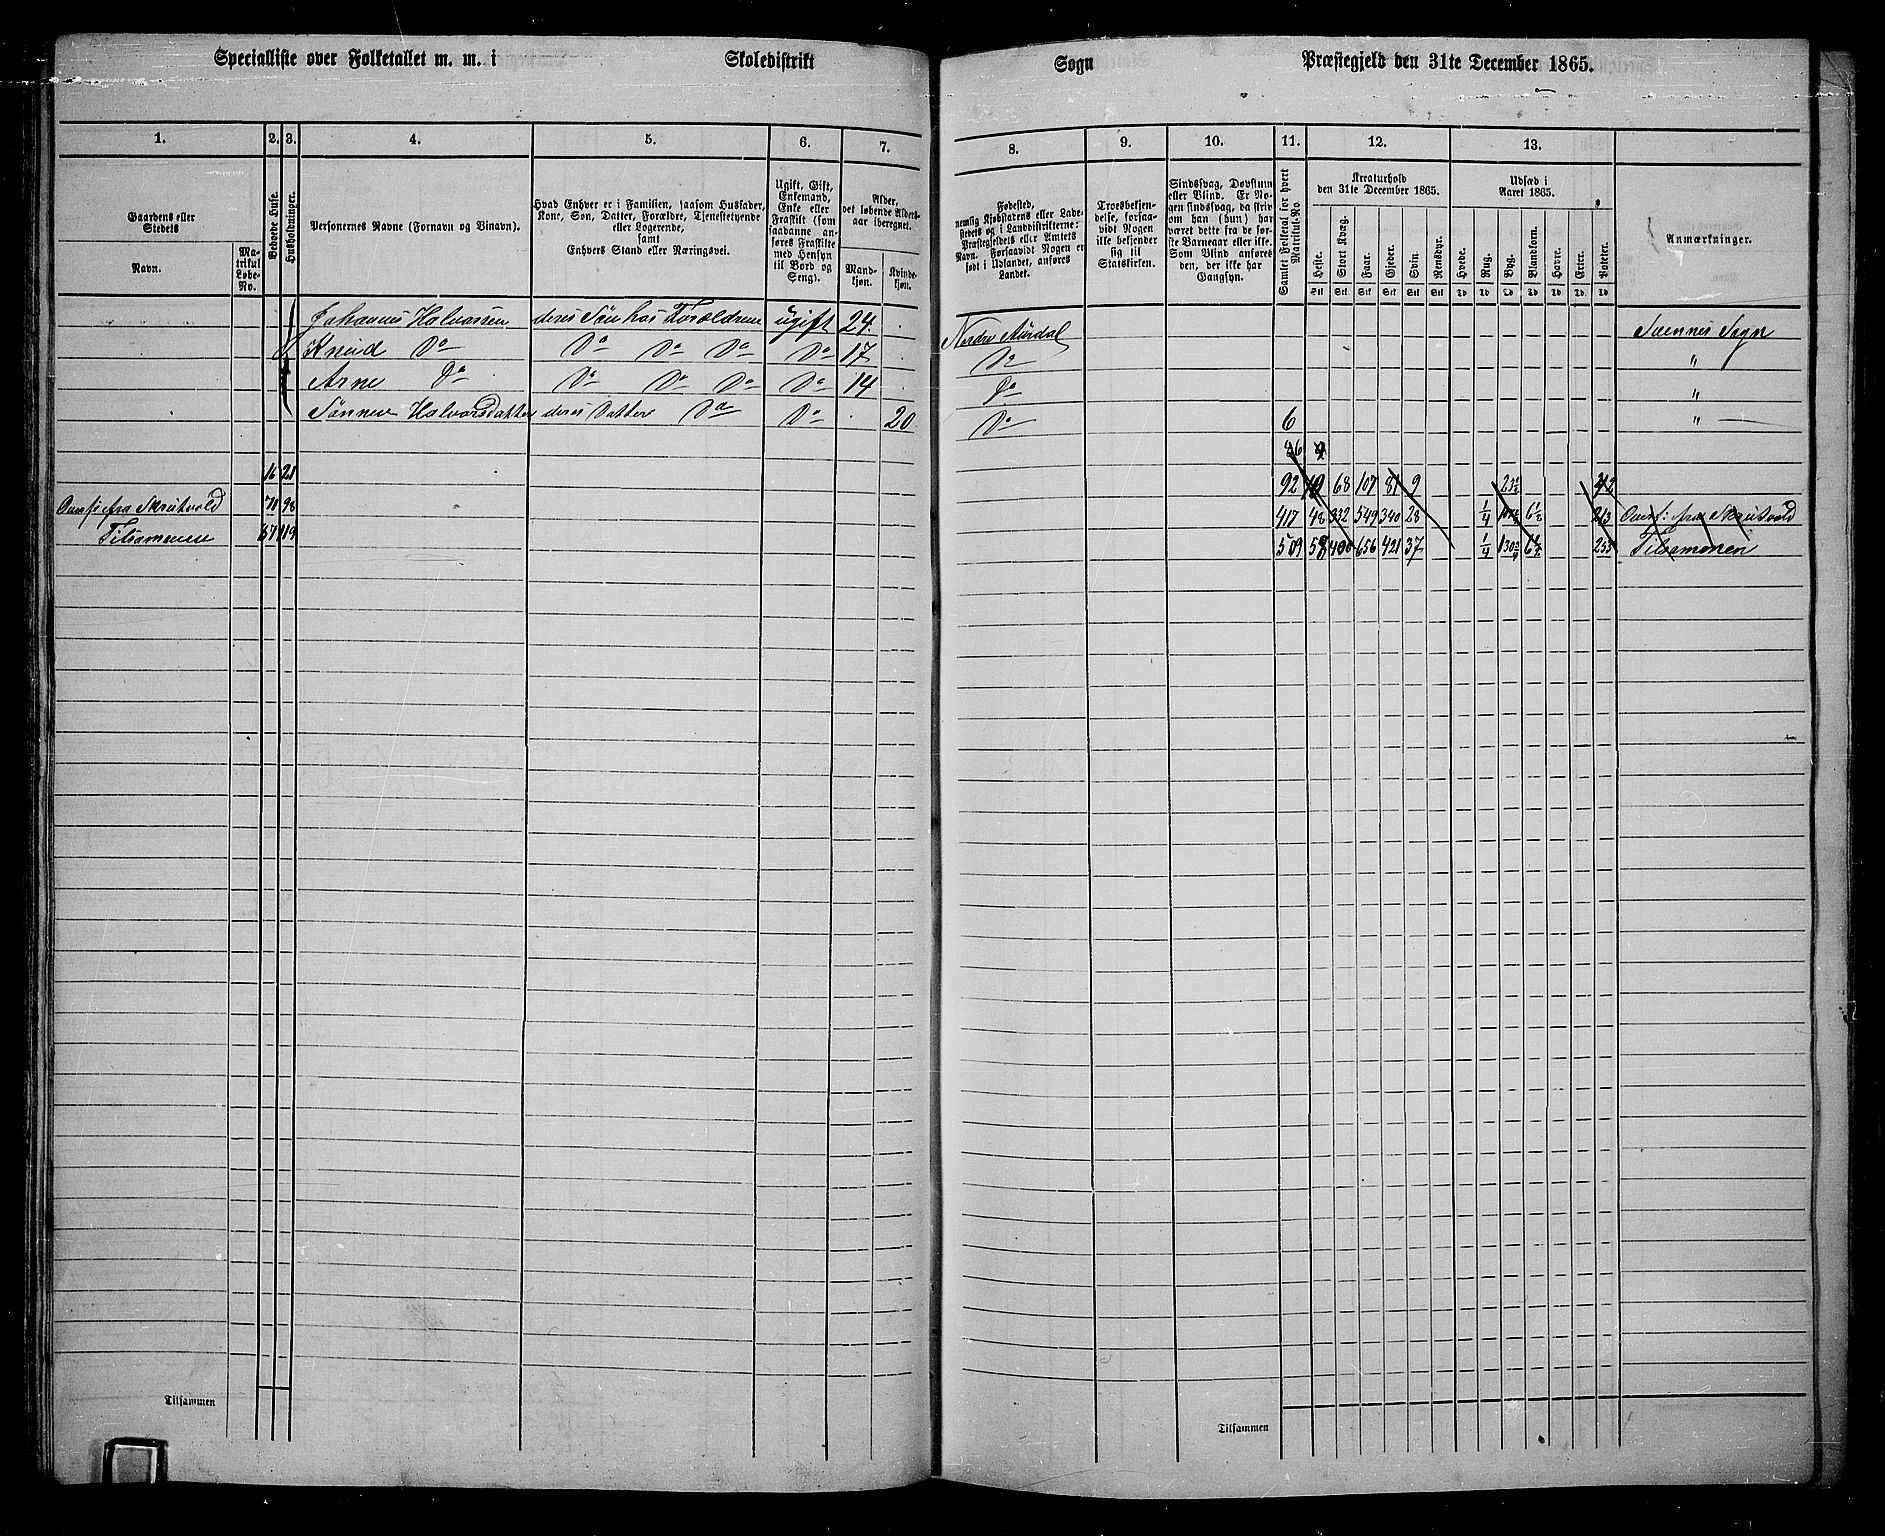 Specialliste over Folketallet m. m. i Skoledistrikt Sogn Præstegjeld den 31te December 1865.
1. 2. 3. 4. 5. 6. 7. 8. 9. 10. 11. 12. 13.
Gaardens eller Stedets
Navn.
Matrikul Løbe-No.
Beboede Huse.
Husholdninger.
Personernes Navne (Fornavn og Binavn).
Hvad Enhver er i Familien, saasom Husfader, Kone, Søn, Datter, Forældre, Tjenestetyende eller Logerende, samt Enhvers Stand eller Næringsvei.
Ugift, Gift, Enkemand, Enke eller Fraskilt (som saadanne anføres Fraskilte med Hensyn til Bord og Seng).
Alder, det løbende Aldersaar iberegnet.
Mandkjøn.
Kvindekjøn.
Fødested, nemlig Kjøbstadens eller Ladestedets og i Landdistrikterne: Præstegjeldets eller Amtets Navn. Forsaavidt Nogen er født i Udlandet, anføres Landet.
Troesbekjendelse, forsaavidt Nogen ikke bekjender sig til Statskirken.
Sindssvag, Døvstum eller Blind. Er Nogen sindssvag, da skriv om han (hun) har været dette fra de første Barneaar eller ikke. Som Blind anføres den, der ikke har Gangsyn.
Samlet Folketal for hvert Matrikul-No
Kreaturhold den 31te December 1865.
Heste. Stort Kvæg. Faar. Gjeder. Svin. Rensdyr.
Stk Stk Stk Stk Stk Stk
Udsæd i Aaret 1865.
Hvede. Rug. Byg. Blandkorn. Havre. Erter. Poteter.
Td Td Td Td Td Td Td
Anmærkninger.
Johannes Halvorsen deres Søn hos Forældrene ugift 24. Nordre Aurdal Sogn
Knud Do Do Do Do Do 17 Do "
Arne Do Do Do Do Do 14 Do "
Halvorsdatter deres Datter Do Do 20 Do 6 "
16 21 92 68 107 81 9
fra 71 98 417 48 332 549 340 28 1/4 213 fra
119 509 58 400 656 421 37 1/4 255
Tilsammen
Tilsammen